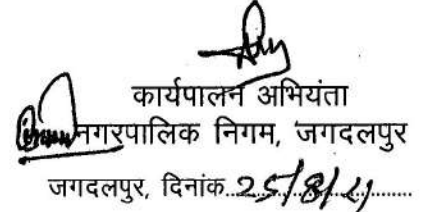 कार्यपालन अभियंता
नगरपालिक निगम, जगदलपुर
जगदलपुर, दिनांक 25/8/21